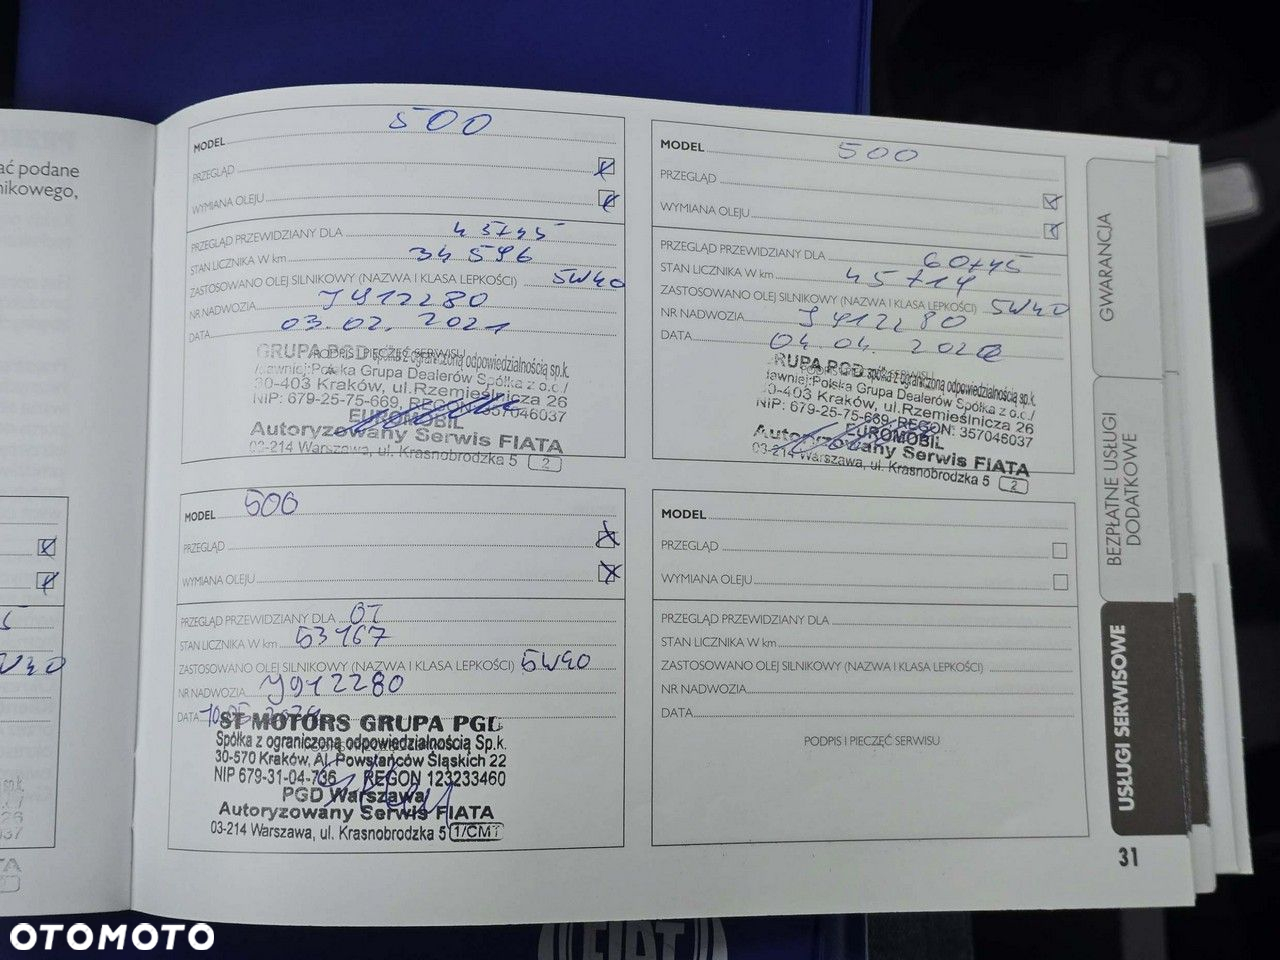 ać podane
nikowego,
MODEL 500
PRZEGLĄD
WYMIANA OLEJU
PRZEGLĄD PRZEWIDZIANY DLA 45745
STAN LICZNIKA W km 34 596
ZASTOSOWANO OLEJ SILNIKOWY (NAZWA I KLASA LEPKOŚCI) 5W40
NR NADWOZIA J912280
DATA 03.02.2021
PODPIS I PIECZĘĆ SERWISU
GRUPA PGD spółka z ograniczoną odpowiedzialnością sp.k.
/dawniej:Polska Grupa Dealerów Spółka z o.o./
30-403 Kraków, ul.Rzemieślnicza 26
NIP: 679-25-75-669, REGON: 357046037
EUROMOBIL
Autoryzowany Serwis FIATA
03-214 Warszawa, ul. Krasnobrodzka 5 2
MODEL 500
PRZEGLĄD
WYMIANA OLEJU
PRZEGLĄD PRZEWIDZIANY DLA 60745
STAN LICZNIKA W km 45714
ZASTOSOWANO OLEJ SILNIKOWY (NAZWA I KLASA LEPKOŚCI) 5W40
NR NADWOZIA J912280
DATA 04.04.2022
RUPA PGD spółka z ograniczoną odpowiedzialnością sp.k.
/dawniej:Polska Grupa Dealerów Spółka z o.o./
30-403 Kraków, ul.Rzemieślnicza 26
NIP: 679-25-75-669, REGON: 357046037
EUROMOBIL
Autoryzowany Serwis FIATA
03-214 Warszawa, ul. Krasnobrodzka 5 2
MODEL 500
PRZEGLĄD
WYMIANA OLEJU
PRZEGLĄD PRZEWIDZIANY DLA OT
STAN LICZNIKA W km 53167
ZASTOSOWANO OLEJ SILNIKOWY (NAZWA I KLASA LEPKOŚCI) 5W40
NR NADWOZIA J912280
DATA
ST MOTORS GRUPA PGD
Spółka z ograniczoną odpowiedzialnością Sp.k.
30-570 Kraków, Al. Powstańców Śląskich 22
NIP 679-31-04-736 REGON 123233460
PGD Warszawa
Autoryzowany Serwis FIATA
03-214 Warszawa, ul. Krasnobrodzka 5 1/CMT
MODEL
PRZEGLĄD
WYMIANA OLEJU
PRZEGLĄD PRZEWIDZIANY DLA
STAN LICZNIKA W km
ZASTOSOWANO OLEJ SILNIKOWY (NAZWA I KLASA LEPKOŚCI)
NR NADWOZIA
DATA
PODPIS I PIECZĘĆ SERWISU
GWARANCJA
BEZPŁATNE USŁUGI
DODATKOWE
USŁUGI SERWISOWE
31
FIAT
OTOMOTO